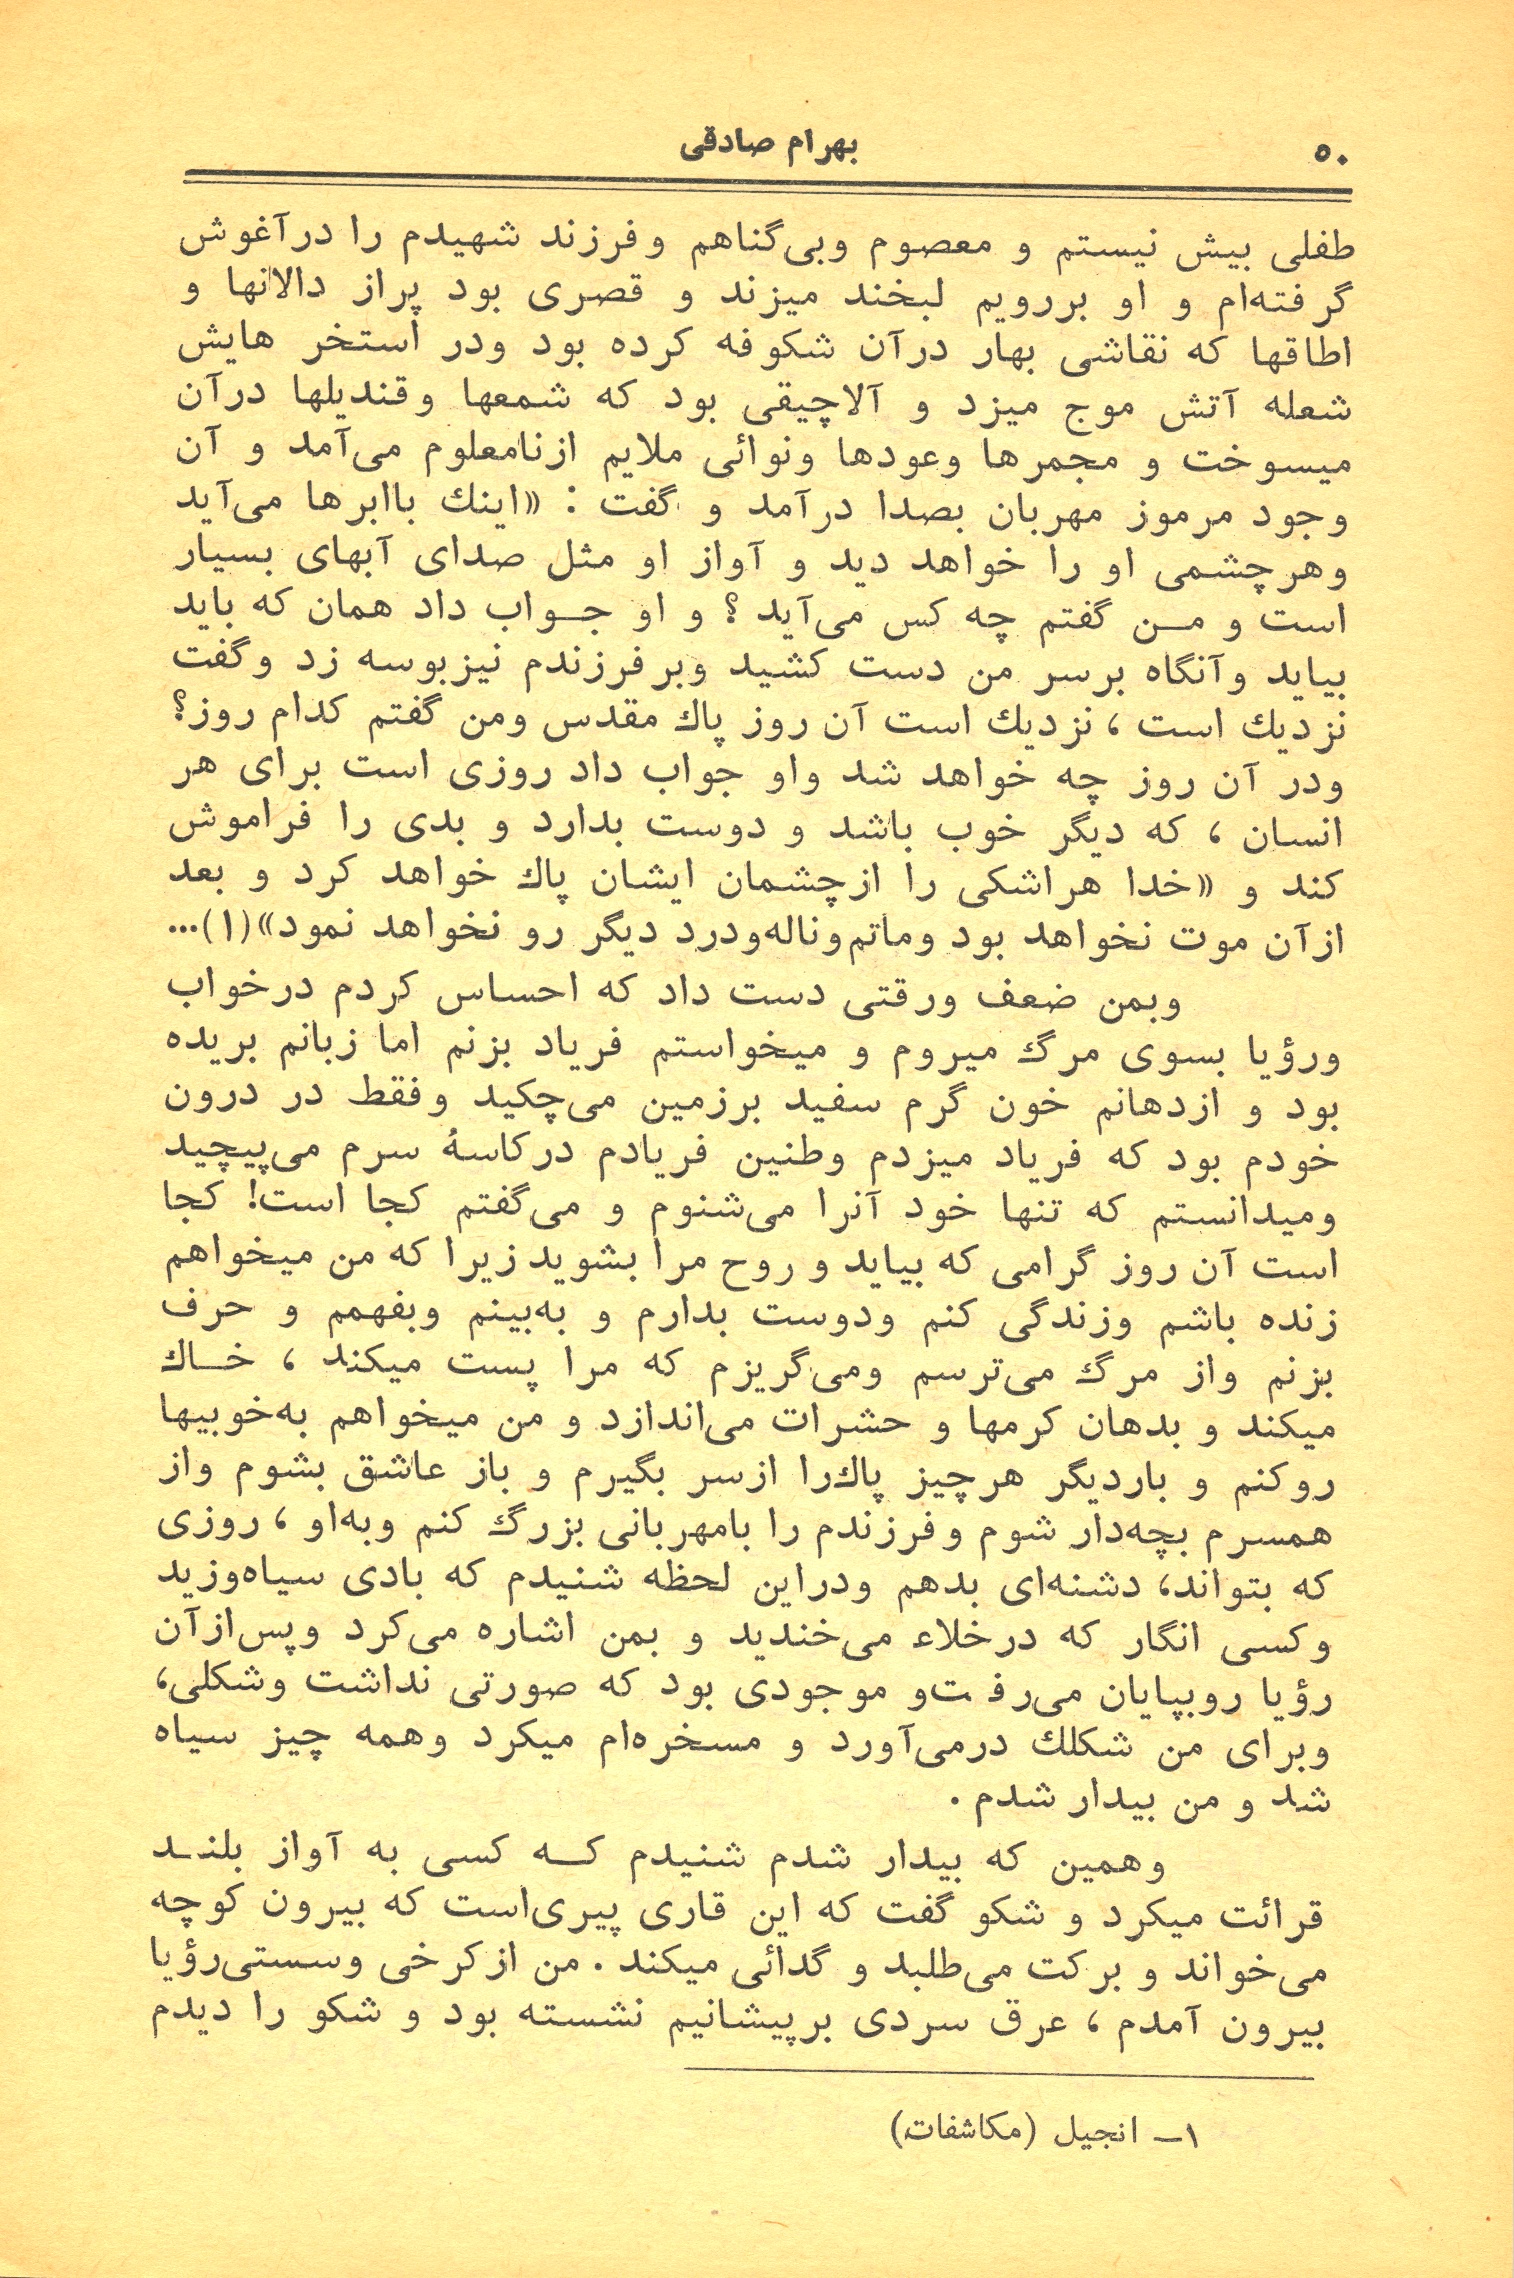 ۵۰
بهرام صادقی
طفلی بیش نیستم و معصوم وبی‌گناهم وفرزند شهیدم را درآغوش
گرفته‌ام و او بررویم لبخند میزند و قصری بود پراز دالانها و
اطاقها که نقاشی بهار درآن شکوفه کرده بود ودر استخر هایش
شعله آتش موج میزد و آلاچیقی بود که شمعها وقندیلها درآن
میسوخت و مجمرها وعودها ونوائی ملایم ازنامعلوم می‌آمد و آن
وجود مرموز مهربان بصدا درآمد و گفت : «اینك باابرها می‌آید
وهرچشمی او را خواهد دید و آواز او مثل صدای آبهای بسیار
است و مـن گفتم چه کس می‌آید ؟ و او جـواب داد همان که باید
بیاید وآنگاه برسر من دست کشید وبرفرزندم نیزبوسه زد وگفت
نزدیك است ، نزدیك است آن روز پاك مقدس ومن گفتم کدام روز؟
ودر آن روز چه خواهد شد واو جواب داد روزی است برای هر
انسان ، که دیگر خوب باشد و دوست بدارد و بدی را فراموش
کند و «خدا هراشکی را ازچشمان ایشان پاك خواهد کرد و بعد
ازآن موت نخواهد بود وماتم‌وناله‌ودرد دیگر رو نخواهد نمود»(۱)...
وبمن ضعف ورقتی دست داد که احساس کردم درخواب
ورؤیا بسوی مرگ میروم و میخواستم فریاد بزنم اما زبانم بریده
بود و ازدهانم خون گرم سفید برزمین می‌چکید وفقط در درون
خودم بود که فریاد میزدم وطنین فریادم درکاسهٔ سرم می‌پیچید
ومیدانستم که تنها خود آنرا می‌شنوم و می‌گفتم کجا است! کجا
است آن روز گرامی که بیاید و روح مرا بشوید زیرا که من میخواهم
زنده باشم وزندگی کنم ودوست بدارم و به‌بینم وبفهمم و حرف
بزنم واز مرگ می‌ترسم ومی‌گریزم که مرا پست میکند ، خـاك
میکند و بدهان کرمها و حشرات می‌اندازد و من میخواهم به‌خوبیها
روکنم و باردیگر هرچیز پاك‌را ازسر بگیرم و باز عاشق بشوم واز
همسرم بچه‌دار شوم وفرزندم را بامهربانی بزرگ کنم وبه‌او ، روزی
که بتواند، دشنه‌ای بدهم ودراین لحظه شنیدم که بادی سیاه‌وزید
وکسی انگار که درخلاء می‌خندید و بمن اشاره می‌کرد وپس‌ازآن
رؤیا روبپایان می‌رفت‌و موجودی بود که صورتی نداشت وشکلی،
وبرای من شکلك درمی‌آورد و مسخره‌ام میکرد وهمه چیز سیاه
شد و من بیدار شدم .
وهمین که بیدار شدم شنیدم کـه کسی به آواز بلنـد
قرائت میکرد و شکو گفت که این قاری پیری‌است که بیرون کوچه
می‌خواند و برکت می‌طلبد و گدائی میکند . من ازکرخی وسستی‌رؤیا
بیرون آمدم ، عرق سردی برپیشانیم نشسته بود و شکو را دیدم
۱ــ انجیل (مکاشفات)